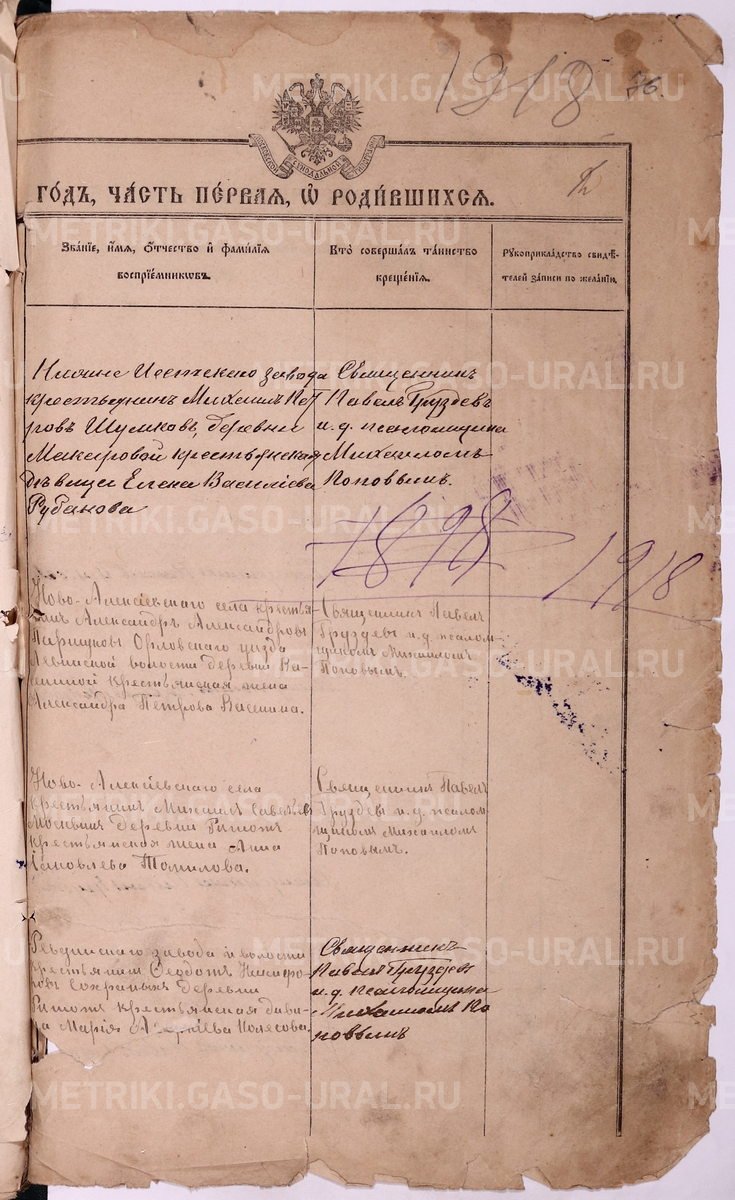 1918
36.
ГОДЪ, ЧАСТЬ ПЕРВАЯ, Ѡ РОДИВШИХСЯ.
Званіе, имя, отчество и фамилія
воспріемниковъ.
Кто совершалъ таинство
крещенія.
Рукоприкладство свидѣ-
телей записи по желанію.
завода
крестьянинъ Михаилъ Пет
ровъ Шумковъ, деревни
Макаровой крестьянская
дѣвица Елена Василіева
Рубанова
Священникъ
Павелъ Груздевъ
и. д. псаломщика
Михаиломъ
Поповымъ.
1898
1918
Ново-Алексѣевскаго села крестья-
нинъ Александръ Александровъ
Орловскаго уѣзда
волости деревни
крестьянская жена
Александра Петрова Васенина.
Священникъ Павелъ
Груздевъ и. д. псалом-
щикомъ Михаиломъ
Поповымъ.
Ново-Алексѣевскаго села
крестьянинъ Михаилъ Савельевъ
деревни
крестьянская жена Анна
Яковлева Томилова.
Священникъ Павелъ
Груздевъ и. д. псалом-
щикомъ Михаиломъ
Поповымъ.
Ревдинскаго завода и волости
крестьянинъ Ѳеодотъ
деревни
крестьянская дѣви-
ца Марія
Священникъ
Павелъ Груздев
и. д. псаломщика
Михаиломъ По
повымъ
METRIKI.GASO-URAL.RU